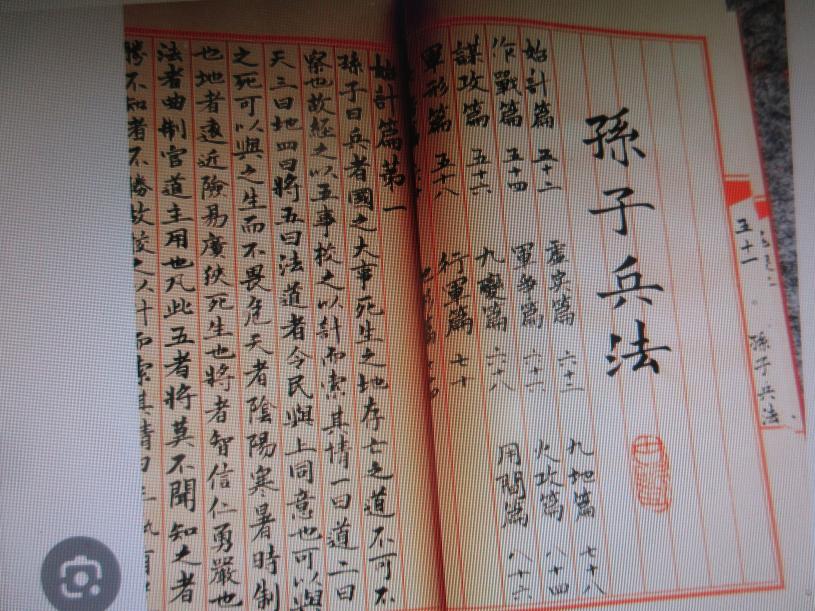 孫子兵法
五十一
孫子兵法
始計篇 五十二 虛实篇 六十三 九地篇 七十八
作戰篇 五十四 軍争篇 六十六 火攻篇 八十四
謀攻篇 五十六 九變篇 六十八 用間篇 八十六
軍形篇 五十八 行軍篇 七十
始計篇第一
孫子曰兵者國之大事死生之地存亡之道不可不
察也故経之以五事校之以計而索其情一曰道二曰
天三曰地四曰將五曰法道者令民與上同意也可以與
之死可以與之生而不畏危天者陰陽寒暑時制
也地者遠近險易廣狹死生也將者智信仁勇嚴也
法者曲制官道主用也凡此五者將莫不聞知之者
勝不知者不勝故校之以計而索其情曰